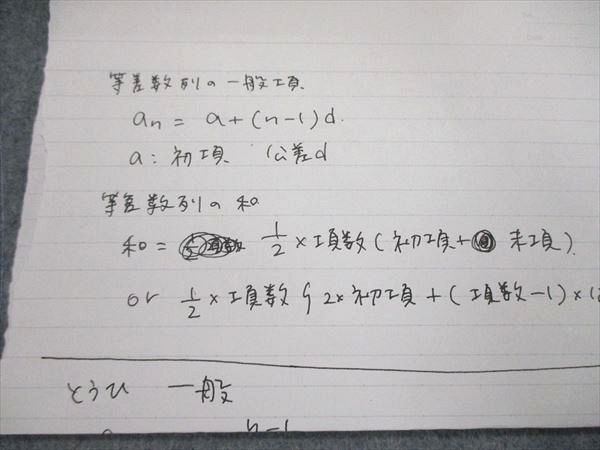 等差数列の一般項
an = a+(n-1)d.
a: 初項 公差d
等差数列の和
和 = 1/2 × 項数(初項+末項)
or 1/2 × 項数{2×初項+(項数-1)×
とうひ 一般
n-1